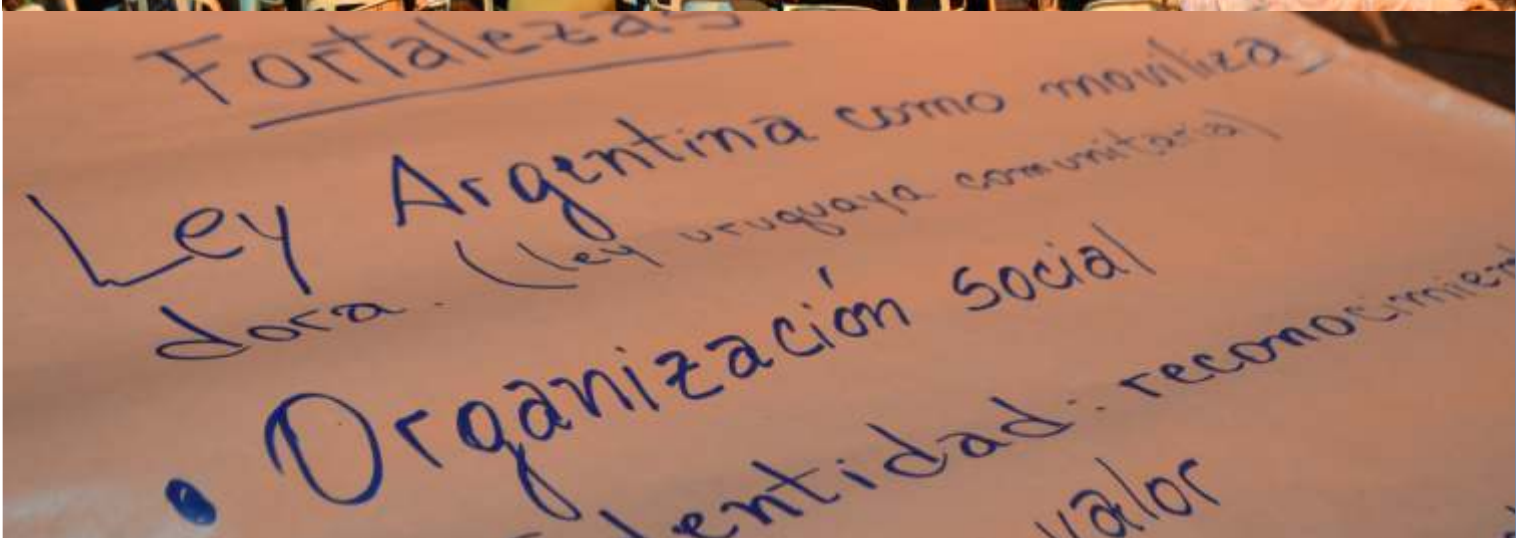 Fortalezas
Ley Argentina como moviliza_
dora. (ley uruguaya comunitaria)
• Organización social
Identidad: reconocimien
valor